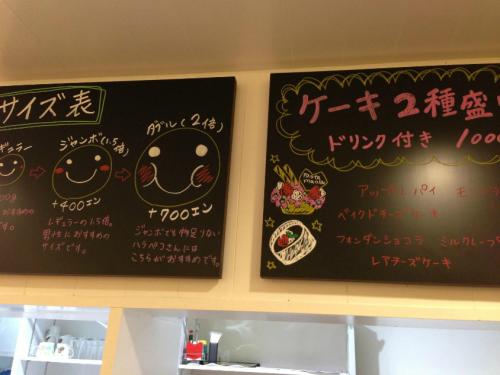 サイズ表
ギュラー
ジャンボ(1.5倍)
+400エン
レギュラーの1.5倍。
男性におすすめの
サイズです。
ダブル(2倍)
+700エン
ジャンボでも物足りない
ハラペコさんには
こちらがおすすめです。
ケーキ2種盛
ドリンク付き 1000
ベイクドチーズケーキ
フォンダンショコラ ミルクレープ
レアチーズケーキ